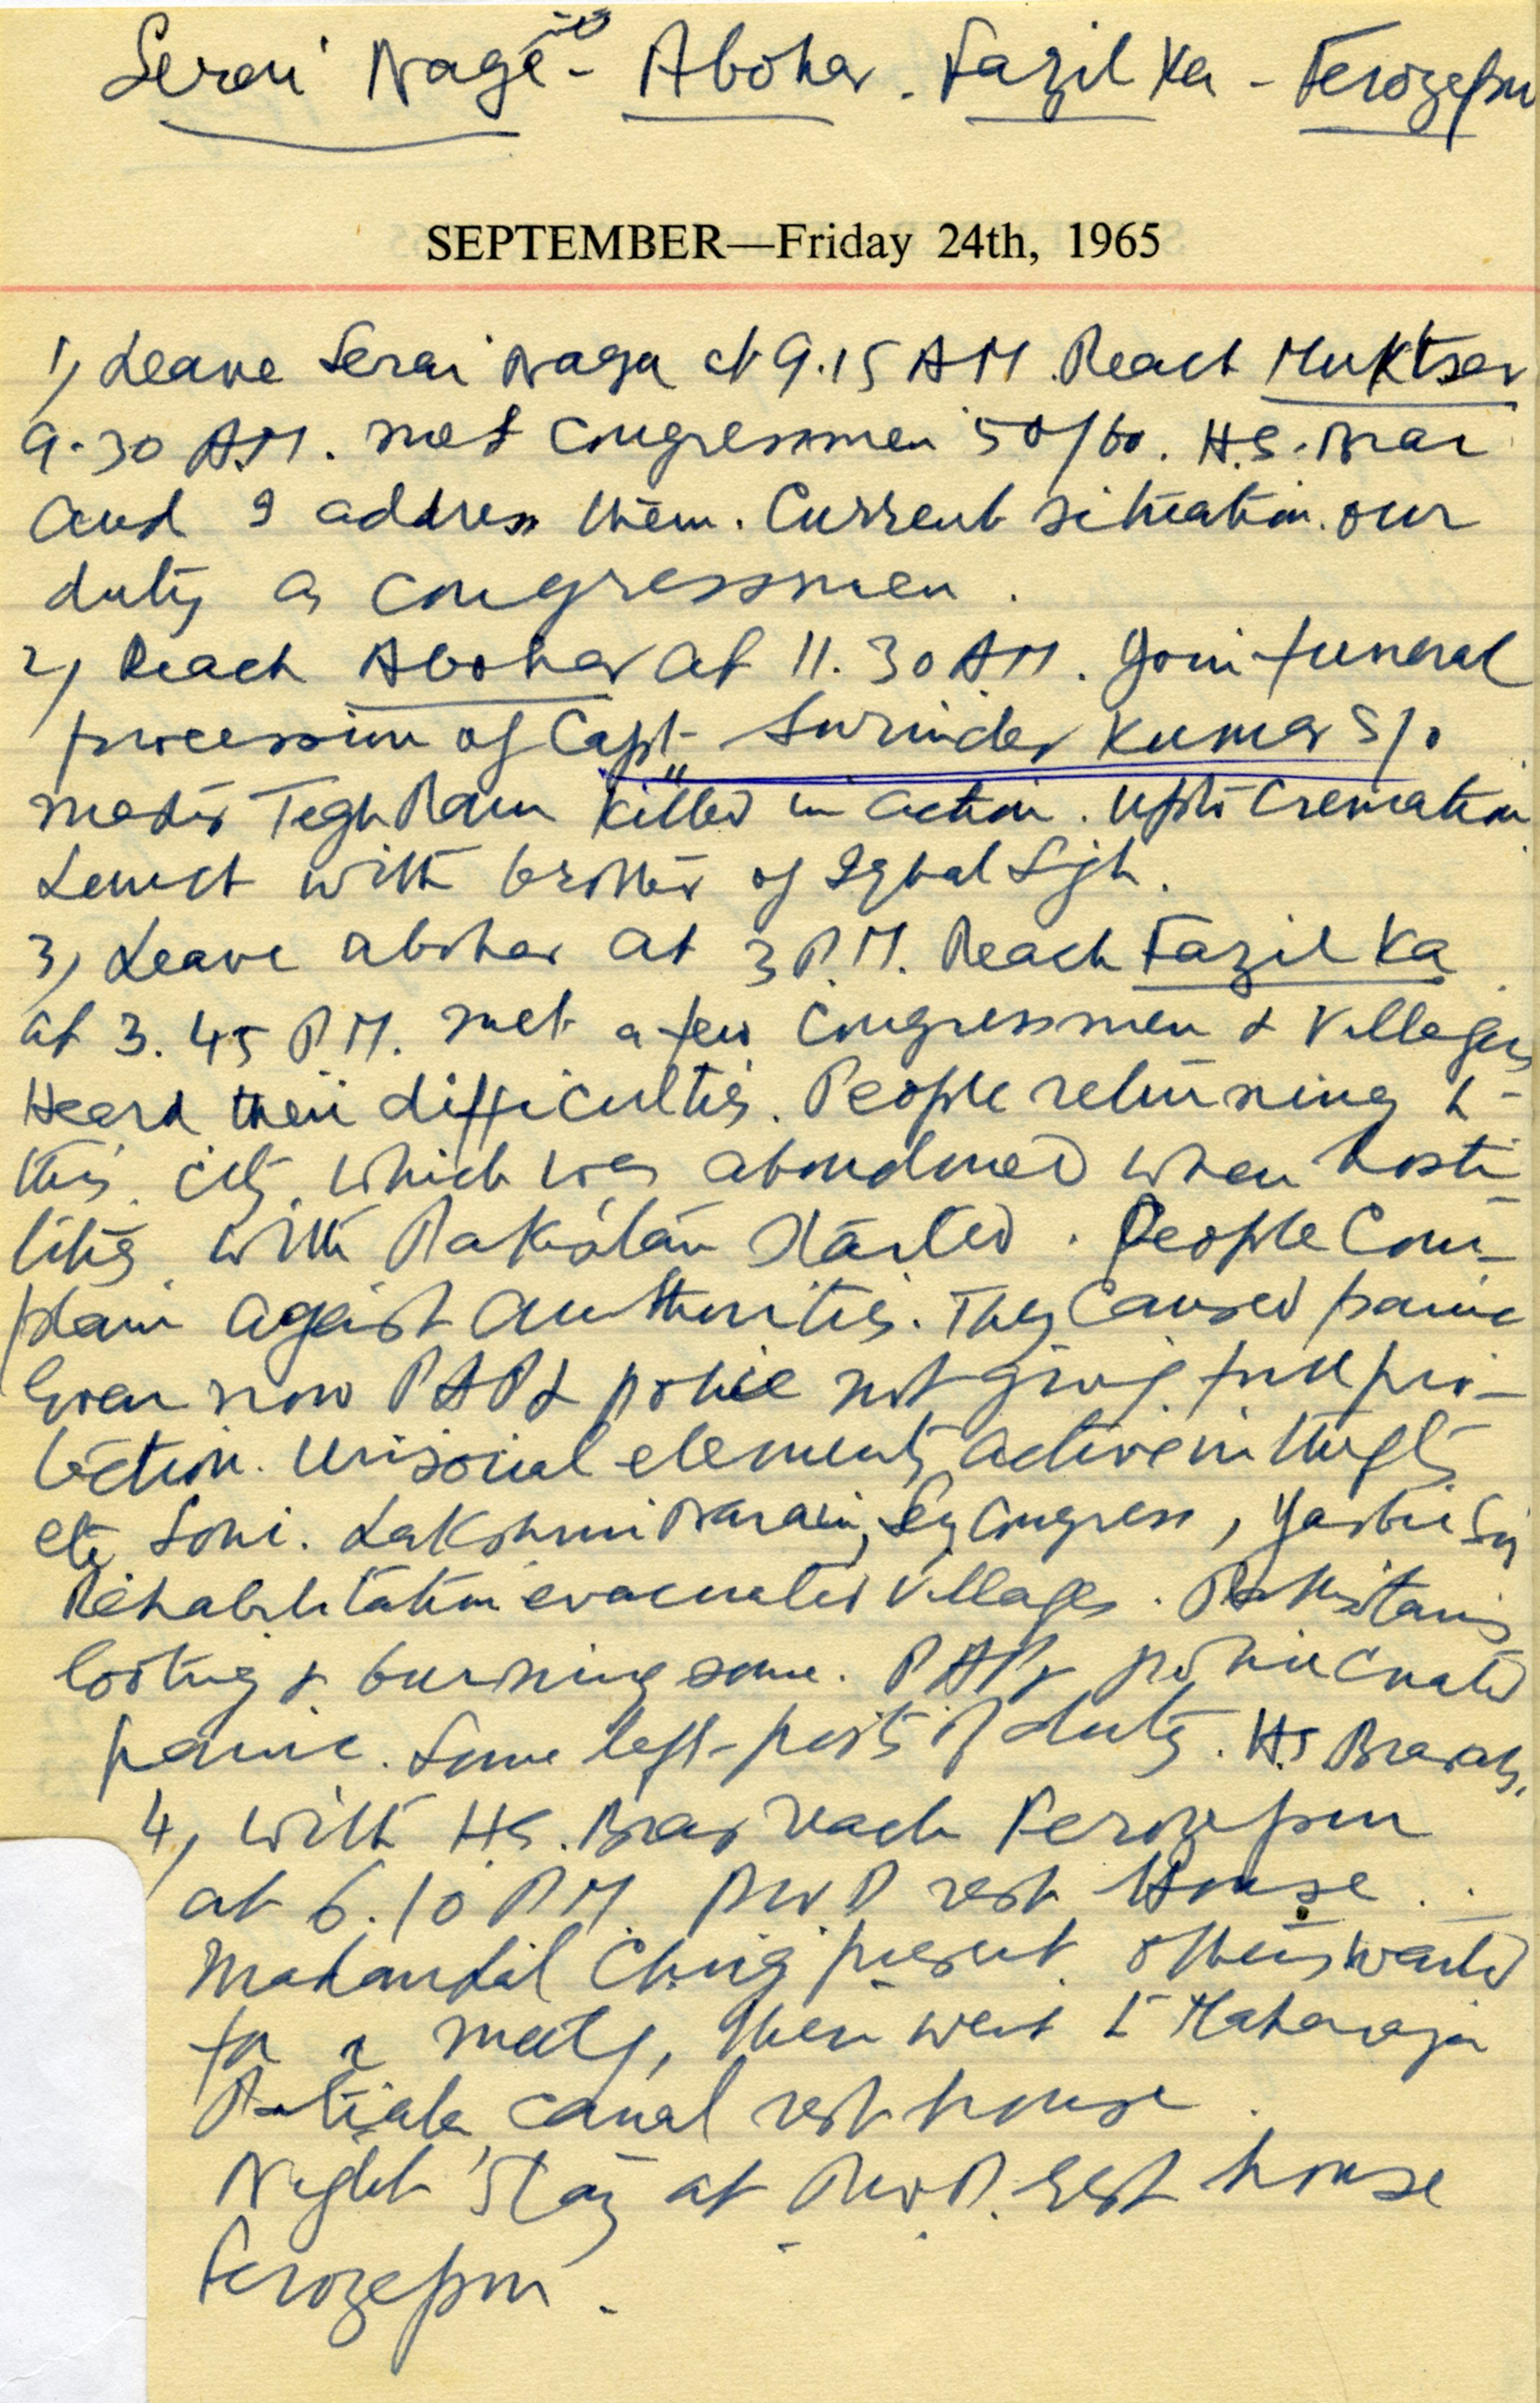 Serai Naga - Abohar - Fazilka - Ferozepur
SEPTEMBER—Friday 24th, 1965
1) Leave Serai Naga at 9.15 AM. Reach Muktsar
9.30 AM. met Congressmen 50/60. H.S. Brar
and I address them. Current situation. our
duty as Congressmen.
2) Reach Abohar at 11.30 AM. Join funeral
procession of Capt Surinder Kumar s/o
Master Tegh Ram killed in action. Upto Cremation
Lunch with brother of Iqbal Sigh.
3) Leave abohar at 3 P.M. Reach Fazilka
at 3.45 P.M. met a few Congressmen & Villagers
Heard their difficulties. People returning to
this city, which was abandoned when hosti
lities with Pakistan started. People Com-
plain against authorities. They Caused panic
Even now PAP & police not giving full pro-
tection. Unisocial elements active in thefts
etc Soni. Lakshmi Narain, Secy Congress, Yashbir
Rehabilitation evacuated Villages. Pakistanis
looting & burning some. PAP & police created
panic. Some left posts of duty. HS Brar
4) With HS. Brar reach Ferozepur
at 6.10 PM PWD rest House.
present others waited
for a meetg, then went to Maharaja
Patiala canal rest house.
Night Stay at P.W.D. rest house
Ferozepur.